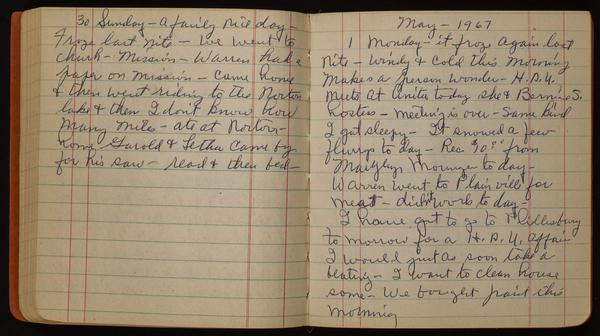 30 Sunday - a fairly nice day -
Froze last nite - We went to
church - Mission - Warren had a
paper on mission - came home
& then went riding to the Norton
lake & then I don't know how
many miles - ate at Norton -
home - Harold & Letha came by
for his saw - read & then bed -
May - 1967
1 Monday - it froze again last
nite - Windy & cold this morning
makes a person wonder - H.D.U.
meets at Anitas today she & Bernice S.
hostess - meeting is over - same kind
I got sleepy - It snowed a few
to day - Rec from
to day -
Warren went to Plainville for
meat - didn't work to day -
I have got to go to Phillipsburg
to morrow for a H.D.U. affair
I would just as soon take a
beating - I want to clean house
some - We bought paint this
morning